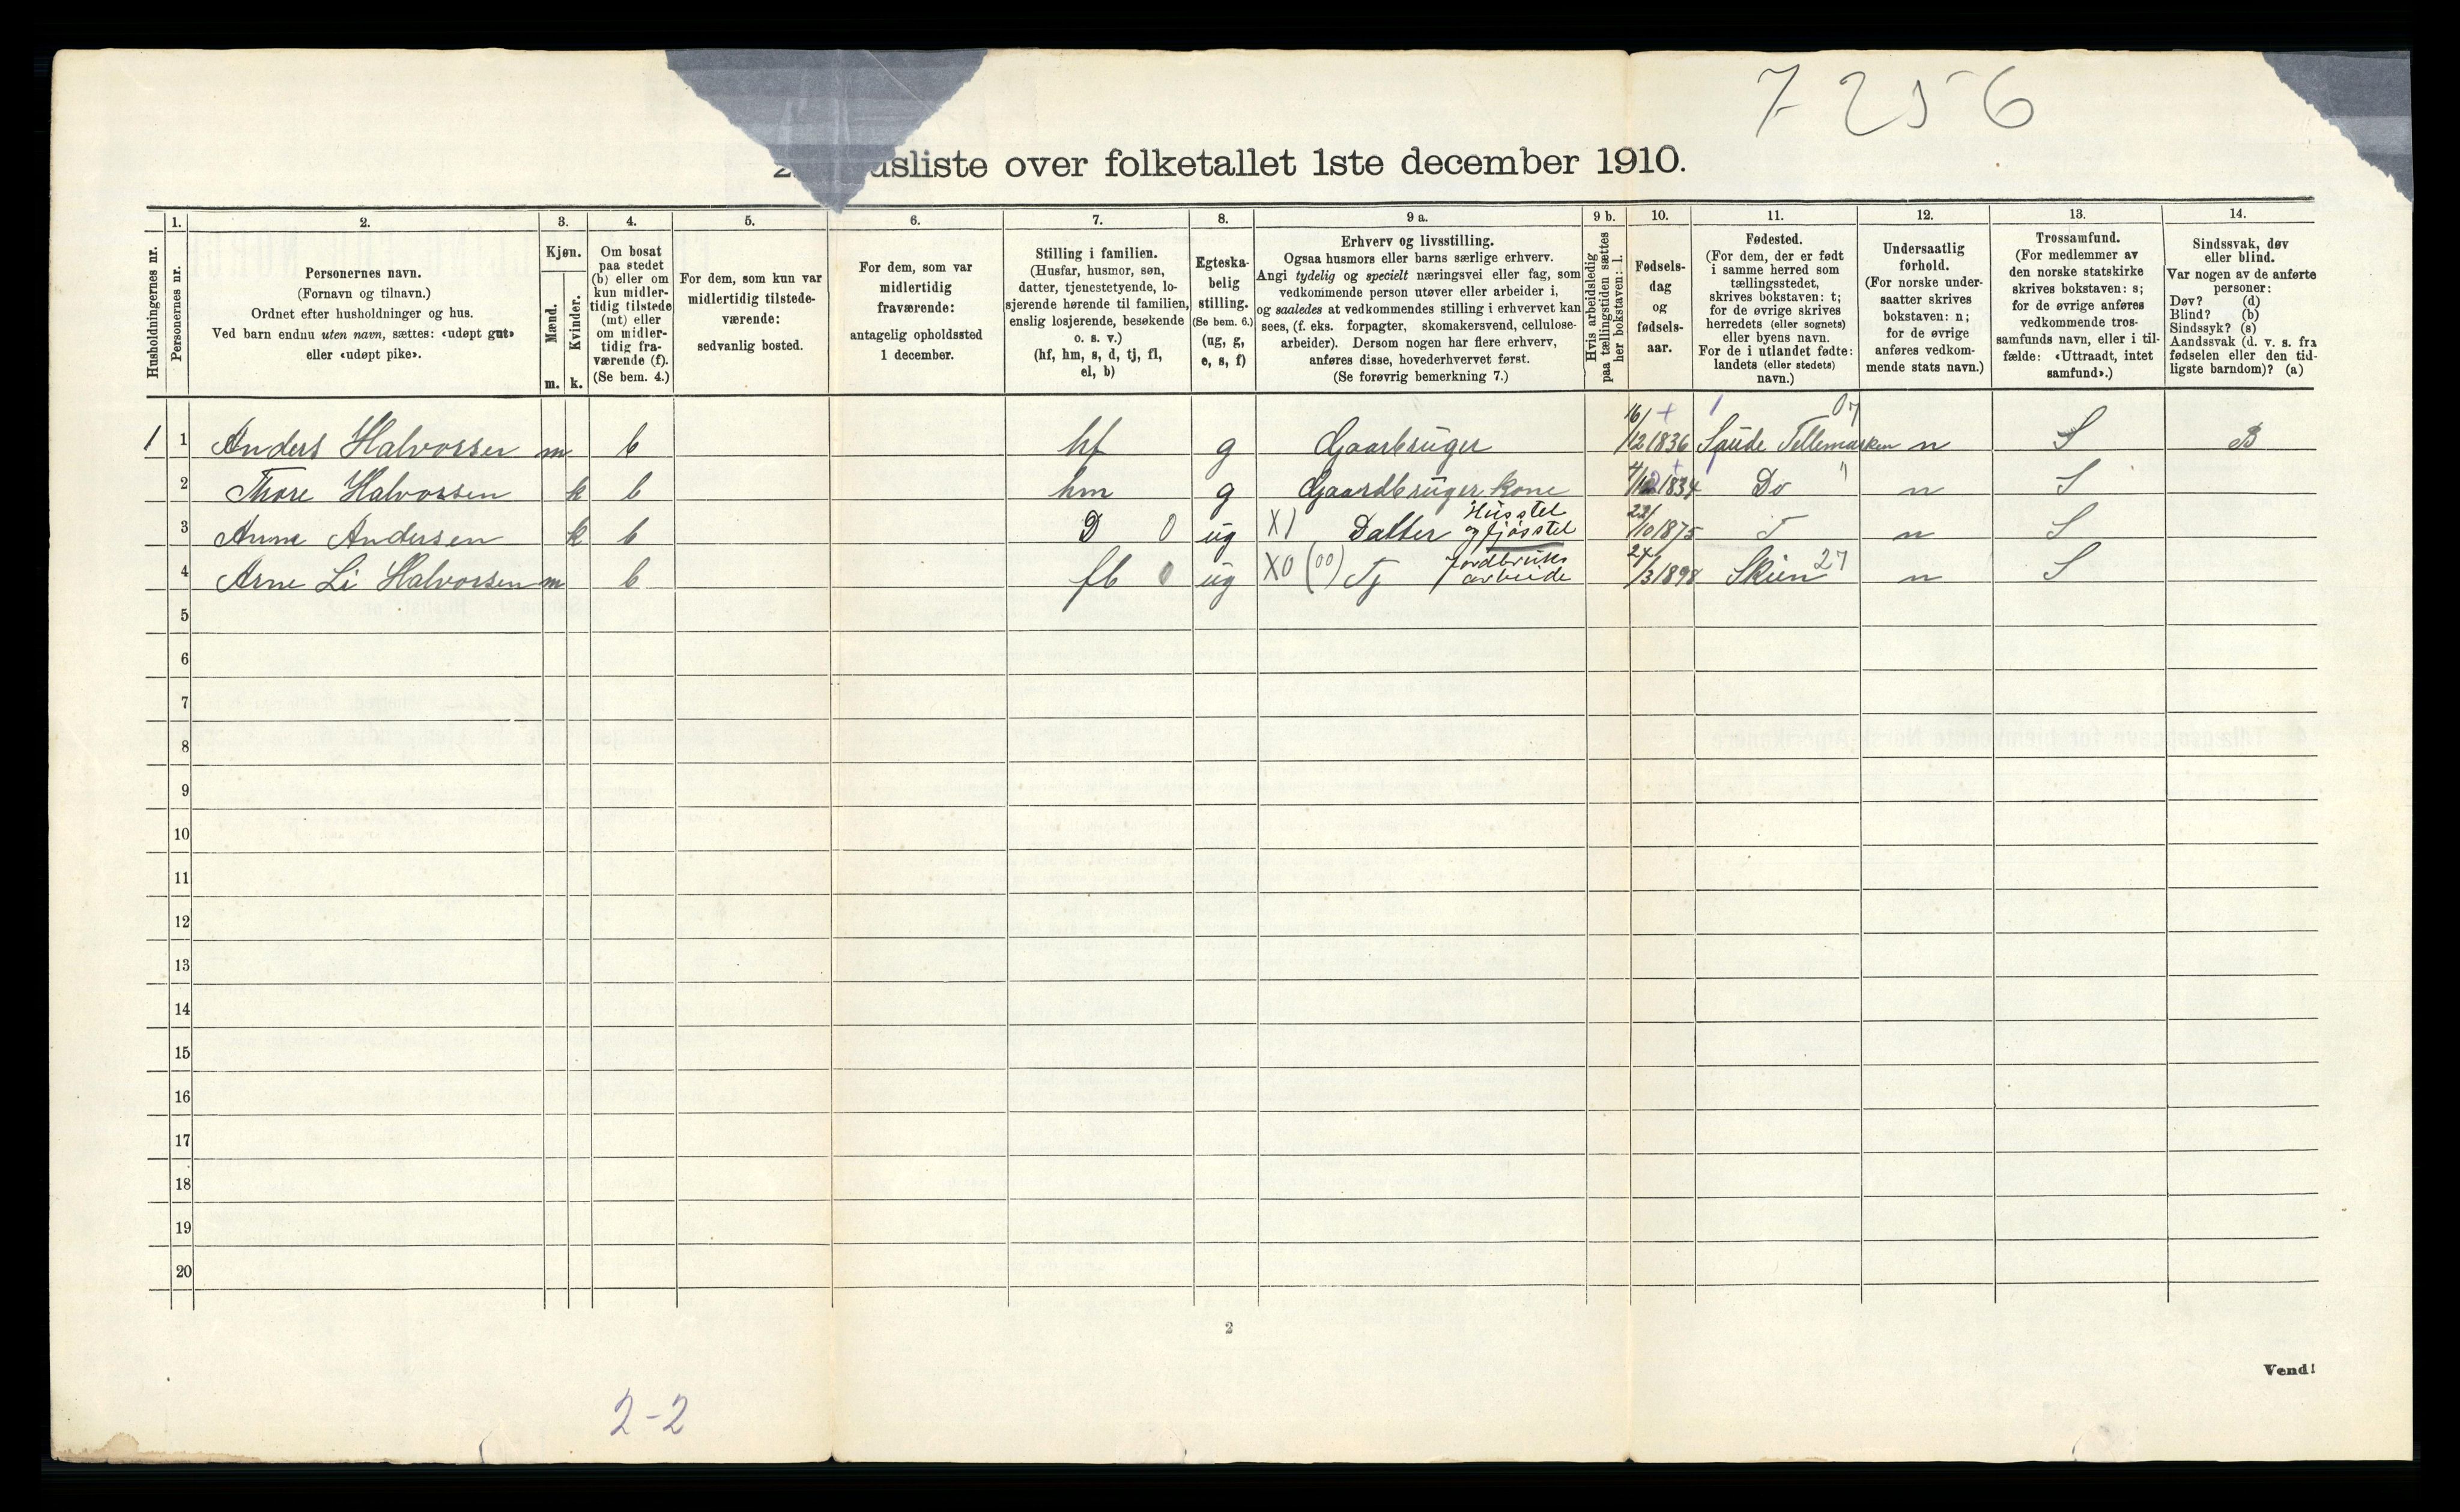 7256
2. usliste over folketallet 1ste december 1910.
Husholdningernes nr.
1.
Personernes nr.
2.
Personernes navn.
(Fornavn og tilnavn.)
Ordnet efter husholdninger og hus.
Ved barn endnu uten navn, sættes: «udøpt gut»
eller «udøpt pike».
3.
Kjøn.
Mænd.
Kvinder.
m. k.
4.
Om bosat
paa stedet
(b) eller om
kun midler-
tidig tilstede
(mt) eller
om midler-
tidig fra-
værende (f).
(Se bem. 4.)
5.
For dem, som kun var
midlertidig tilstede-
værende:
sedvanlig bosted.
6.
For dem, som var
midlertidig
fraværende:
antagelig opholdssted
1 december.
7.
Stilling i familien.
(Husfar, husmor, søn,
datter, tjenestetyende, lo-
sjerende hørende til familien,
enslig losjerende, besøkende
o. s. v.)
(hf, hm, s, d, tj, fl,
el, b)
8.
Egteska-
belig
stilling.
(Se bem. 6.)
(ug, g,
e, s, f)
9 a.
Erhverv og livsstilling.
Ogsaa husmors eller barns særlige erhverv.
Angi tydelig og specielt næringsvei eller fag, som
vedkommende person utøver eller arbeider i,
og saaledes at vedkommendes stilling i erhvervet kan
sees, (f. eks. forpagter, skomakersvend, cellulose-
arbeider). Dersom nogen har flere erhverv,
anføres disse, hovederhvervet først.
(Se forøvrig bemerkning 7.)
9 b.
Hvis arbeidsledig
paa tællingstiden sættes
her bokstaven: l.
10.
Fødsels-
dag
og
fødsels-
aar.
11.
Fødested.
(For dem, der er født
i samme herred som
tællingsstedet,
skrives bokstaven: t;
for de øvrige skrives
herredets (eller sognets)
eller byens navn.
For de i utlandet fødte:
landets (eller stedets)
navn.)
12.
Undersaatlig
forhold.
(For norske under-
saatter skrives
bokstaven: n;
for de øvrige
anføres vedkom-
mende stats navn.)
13.
Trossamfund.
(For medlemmer av
den norske statskirke
skrives bokstaven: s;
for de øvrige anføres
vedkommende tros-
samfunds navn, eller i til-
fælde: «Uttraadt, intet
samfund».)
14.
Sindssvak, døv
eller blind.
Var nogen av de anførte
personer:
Døv? (d)
Blind? (b)
Sindssyk? (s)
Aandssvak (d. v. s. fra
fødselen eller den tid-
ligste barndom)? (a)
1 1 Anders Halvorsen m b hf g Gaarbruger 16/12 1836 Saude Tellemarken 07 n S B
2 Thore Halvorsen k b hm g Gaardbruger kone 4/12 1834 Do " n S
3 Anne Andersen k b D 0 ug X1 Datter Husstel og fjøsstel 22/10 1875 T n S
4 Arne Li Halvorsen m b fb 0 ug X0 (00) Tj Jordbruks arbeide 24/3 1898 Skien 27 n S
5
6
7
8
9
10
11
12
13
14
15
16
17
18
19
20
2
Vend!
2-2